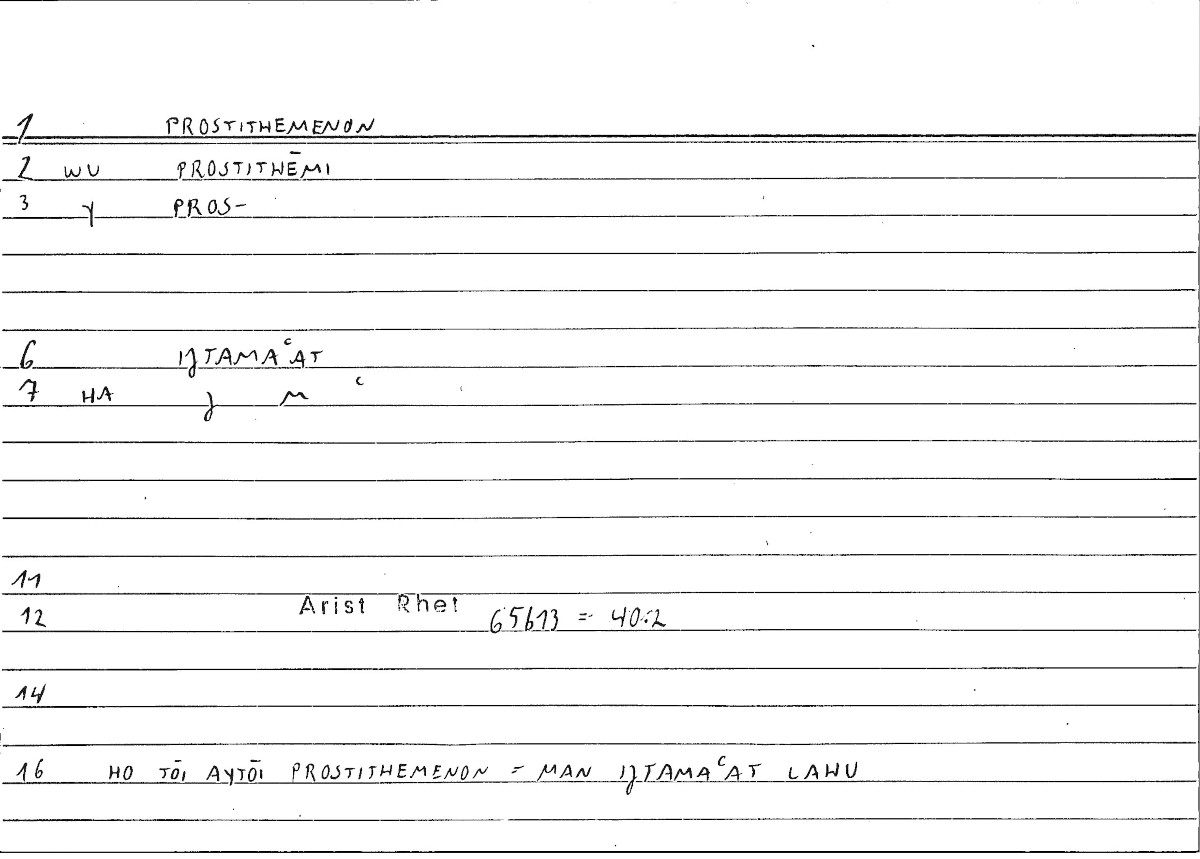 1 PROSTITHEMENON
2 WU PROSTITHĒMI
3 γ PROS-
6 IJTAMAᶜAT
7 HA J M ᶜ
11
12 Arist Rhet 65b13 = 40:2
14
16 HO TŌI AYTŌI PROSTITHEMENON = MAN IJTAMAᶜAT LAHU